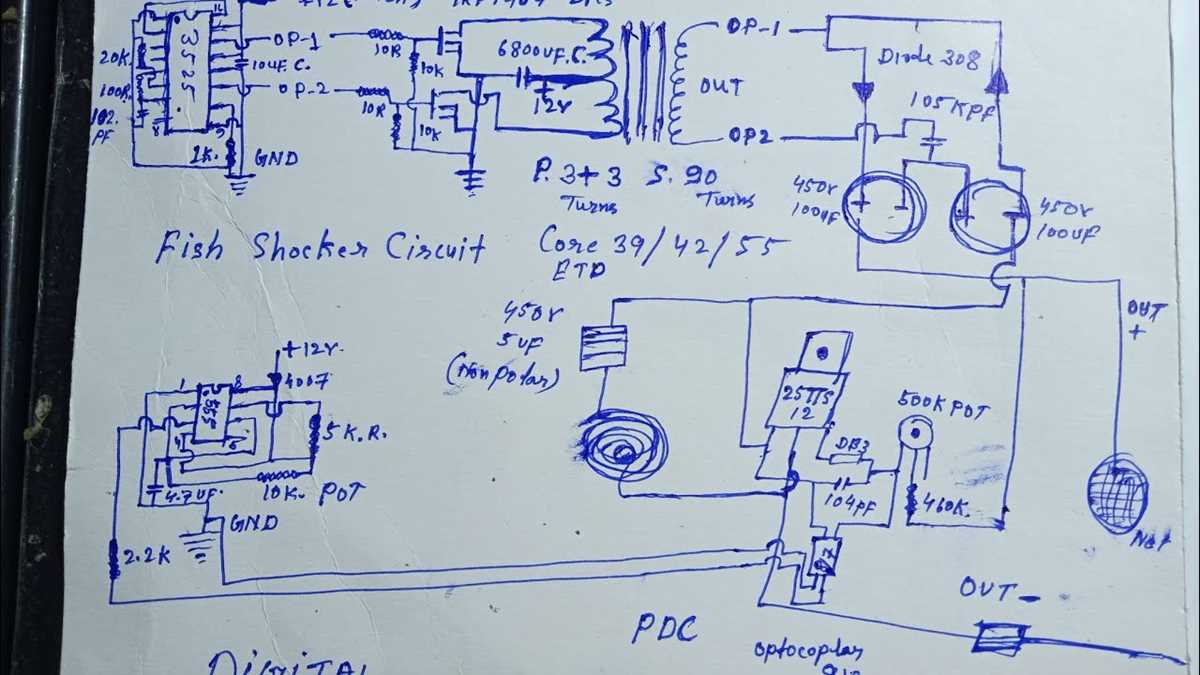 3525
20K.
100R.
102.
PF
1K.
GND
OP-1
10UF.C.
OP-2
10R
10K
10R
10K
6800UF.C.
+
12V
OUT
OP-1
OP2
Diode 308
105KPF
P. 3+3 S. 90
Turns Turns
450V
100UF
450V
100UF
Fish Shocker Circuit
Core 39/42/55
ETD
450V
5UF
(Non Polar)
25TTS
12
DB3
500K POT
104PF
460K.
OUT
+
Net
+12V.
4007
1 8
555
5K.R.
4.7UF.
10K. POT
GND
2.2K
OUT -
PDC
optocoplar
DIGITAL